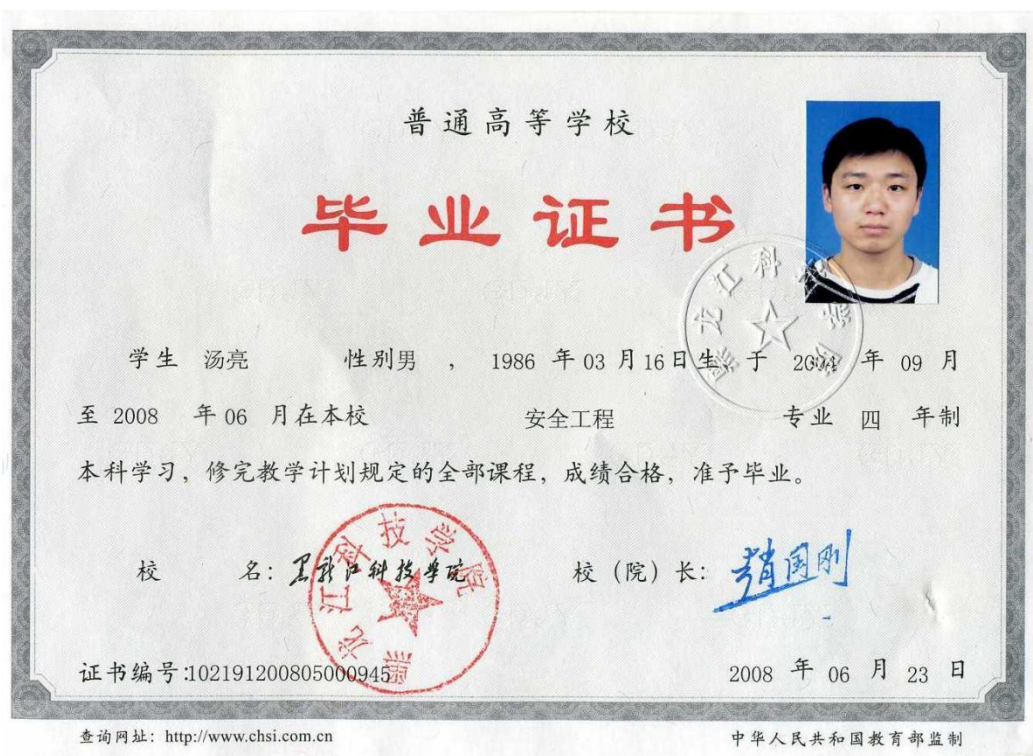 普通高等学校
毕业证书
学生 汤亮 性别男 ， 1986 年 03 月 16 日生 于 2004 年 09 月
至 2008 年 06 月在本校 安全工程 专业 四 年制
本科学习，修完教学计划规定的全部课程，成绩合格，准予毕业。
校 名：黑龙江科技学院
校（院）长：赵国刚
黑龙江科技学院
黑龙江科技学院
证书编号:102191200805000945
2008 年 06 月 23 日
查询网址：http://www.chsi.com.cn
中华人民共和国教育部监制